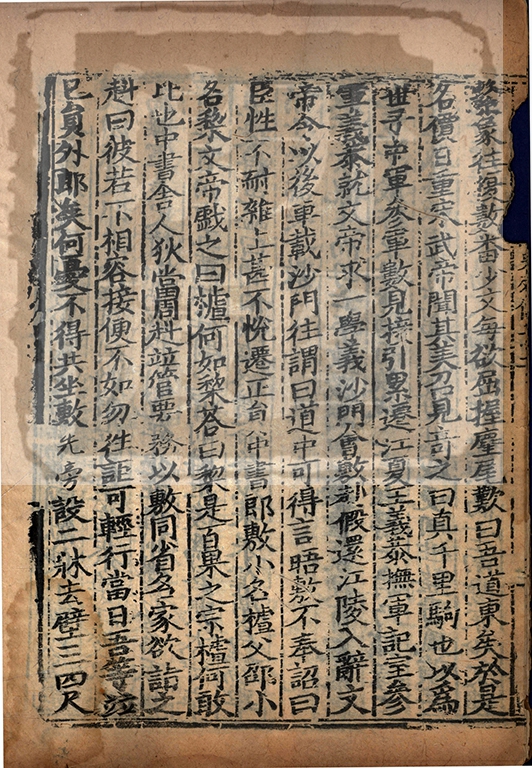 繫象往復數番少文每欲屈握麈尾歎曰吾道東矣於是
名價日重宋武帝聞其美召見奇之曰真千里駒也以爲
世子中軍參軍數見接引累遷江夏王義恭撫軍記室參
軍義恭就文帝求一學義沙門會敷赴假還江陵入辭文
帝令以後車載沙門往謂曰道中可得言晤敷不奉詔曰
臣性不耐雜上甚不悅遷正員中書郎敷小名樝父邵小
名梨文帝戲之曰樝何如梨荅曰梨是百果之宗樝何敢
比也中書舍人狄當周赳竝管要務以敷同省名家欲詣之
赳曰彼若不相容接便不如勿往詎可輕行當曰吾等竝
已員外郎矣何憂不得共坐敷先旁設二牀去壁三四尺